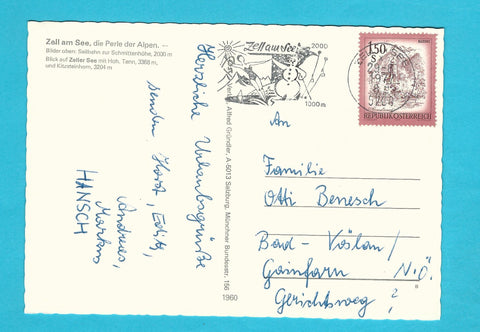 Zell am See, die Perle der Alpen. —
Bilder oben: Seilbahn zur Schmittenhöhe, 2000 m
Blick auf Zeller See mit Hoh. Tenn, 3368 m,
und Kitzsteinhorn, 3204 m
Herzliche Urlaubsgrüße
senden, Horst, Edith,
Andreas,
Markus
HANSCH
Alfred Gründler, A-5013 Salzburg, Münchner Bundesstr. 156
1960
Zell am See
2000
1000 m
1.50
S
REPUBLIK ÖSTERREICH
An
Familie
Otti Benesch
Bad-Vöslau/
Gainfarn N.Ö.
Gerichtsweg 7